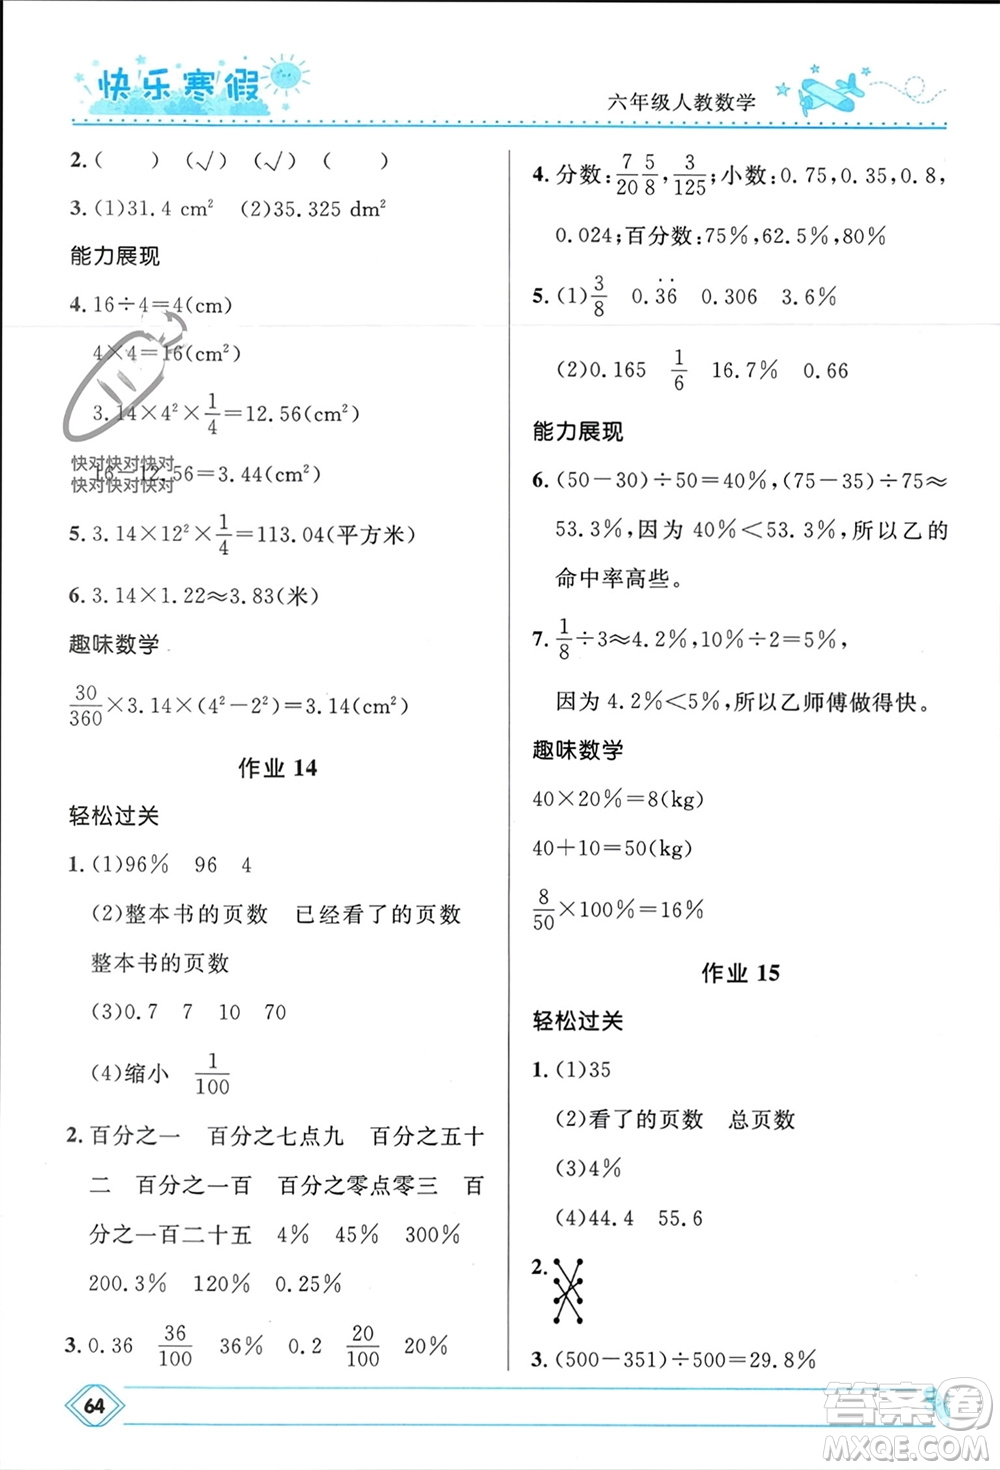 快乐寒假
六年级人教数学
2.(　　) (√) (√) (　　)
3.(1)31.4 cm² (2)35.325 dm²
能力展现
4.16÷4=4(cm)
4×4=16(cm²)
3.14×4²×1/4=12.56(cm²)
16−12.56=3.44(cm²)
快对快对快对
快对快对快对
5.3.14×12²×1/4=113.04(平方米)
6.3.14×1.22≈3.83(米)
趣味数学
30/360×3.14×(4²−2²)=3.14(cm²)
作业 14
轻松过关
1.(1)96% 96 4
(2)整本书的页数 已经看了的页数
整本书的页数
(3)0.7 7 10 70
(4)缩小 1/100
2.百分之一 百分之七点九 百分之五十
二 百分之一百 百分之零点零三 百
分之一百二十五 4% 45% 300%
200.3% 120% 0.25%
3.0.36 36/100 36% 0.2 20/100 20%
64
4.分数:7/20 5/8,3/125;小数:0.75,0.35,0.8,
0.024;百分数:75%,62.5%,80%
5.(1)3/8 0.3̇6̇ 0.306 3.6%
(2)0.165 1/6 16.7% 0.66
能力展现
6.(50−30)÷50=40%,(75−35)÷75≈
53.3%,因为 40%<53.3%,所以乙的
命中率高些。
7.1/8÷3≈4.2%,10%÷2=5%,
因为 4.2%<5%,所以乙师傅做得快。
趣味数学
40×20%=8(kg)
40+10=50(kg)
8/50×100%=16%
作业 15
轻松过关
1.(1)35
(2)看了的页数 总页数
(3)4%
(4)44.4 55.6
2.
3.(500−351)÷500=29.8%
答案卷
MXQE.COM